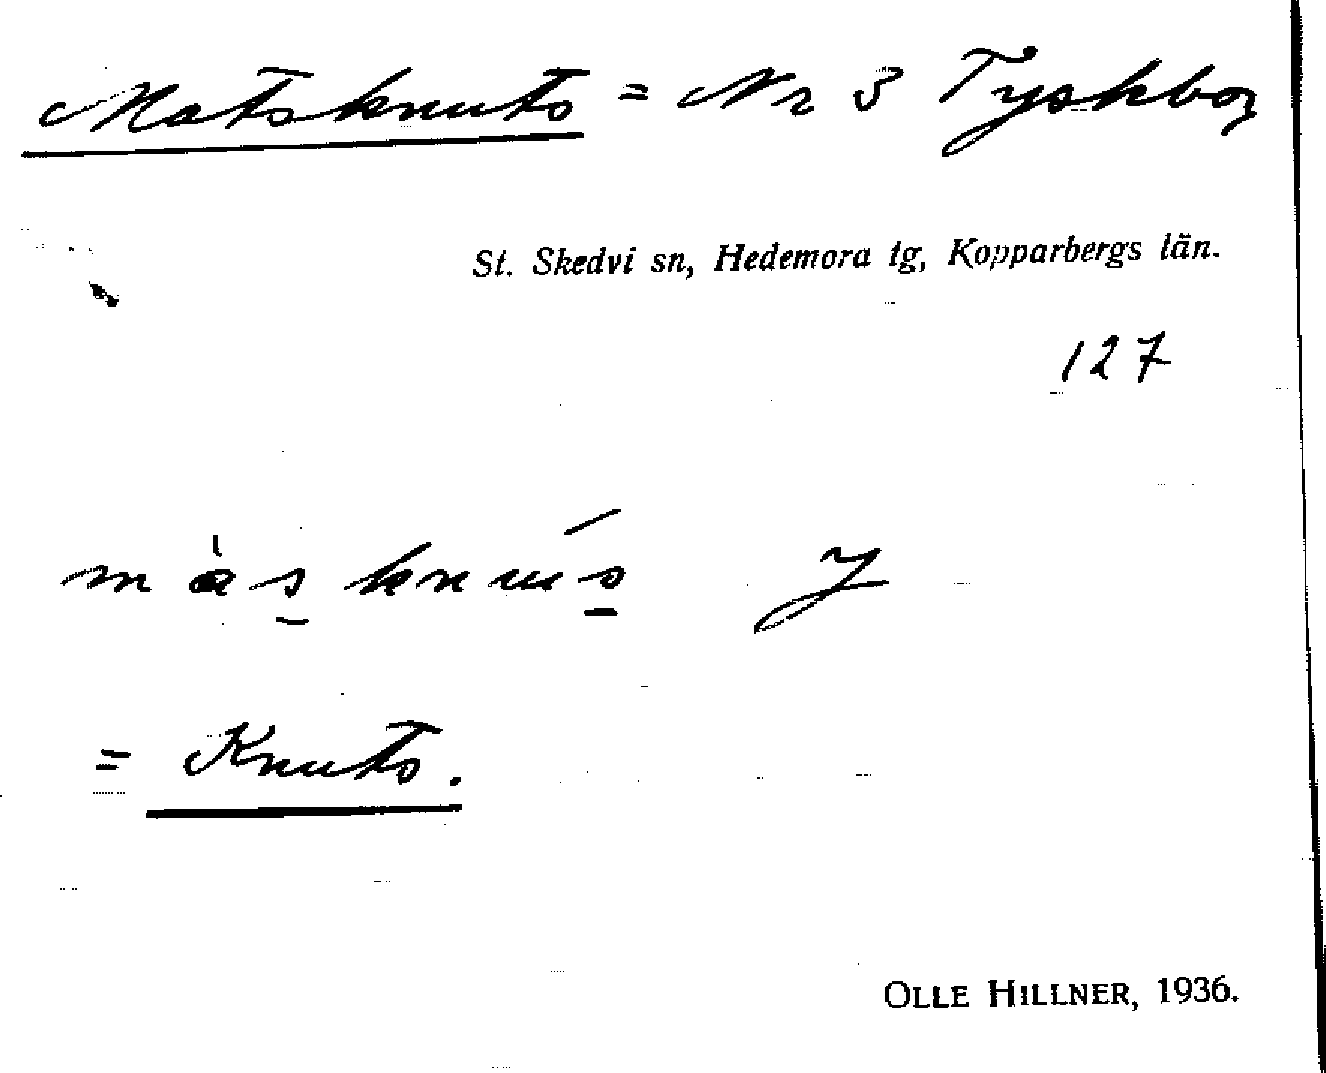 Matsknuts = Nr 3 Tyskbo,
St. Skedvi sn, Hedemora tg, Kopparbergs län.
127
màsknús J
= Knuts.
OLLE HILLNER, 1936.